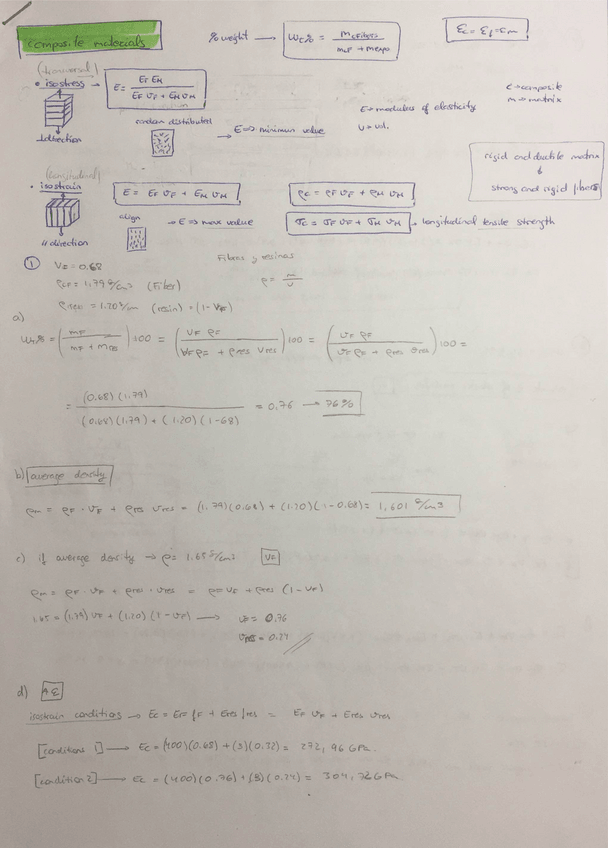 composite materials
% weight → Wc% = mcfibers / mF + mexpo
εc = εf = εm
(transversal)
• isostress → E = EF EM / EF VF + EM VM
⊥direction
random distributed
→ E ⇒ minimum value
E → modulus of elasticity
v → vol.
c → composite
m → matrix
rigid and ductile matrix
↓
strong and rigid fibers
(longitudinal)
• isostrain
E = EF VF + EM VM
ρc = ρF VF + ρM VM
// direction
align
→ E ⇒ max value
σc = σF VF + σM VM → longitudinal tensile strength
① VF = 0.68
Fibras y resinas
ρCF = 1.79 g/cm3 (Fiber)
ρ = m/v
= 1.20 g/cm (resin) = (1 - VF)
a)
% = (mF / mF + mres) 100 = (VF ρF / VF ρF + ρres Vres) 100 = (VF ρF / VF ρF + ρres Vres) 100 =
= (0.68)(1.79) / (0.68)(1.79) + (1.20)(1-68) = 0.76 → 76%
b) average density
ρm = ρF · VF + ρres Vres = (1.79)(0.68) + (1.20)(1-0.68) = 1.601 g/cm3
c) if average density → ρ = 1.65 g/cm3 VF
ρm = ρF · VF + ρres · Vres = ρF VF + ρres (1 - VF)
1.65 = (1.79) VF + (1.20)(1 - VF) → VF = 0.76
Vres = 0.24
d)
isostrain conditions → Ec = EF fF + Eres fres = EF VF + Eres Vres
[conditions 1] → Ec = (400)(0.68) + (3)(0.32) = 272,96 GPa.
[condition 2] → Ec = (400)(0.76) + (3)(0.24) = 304,72 GPa